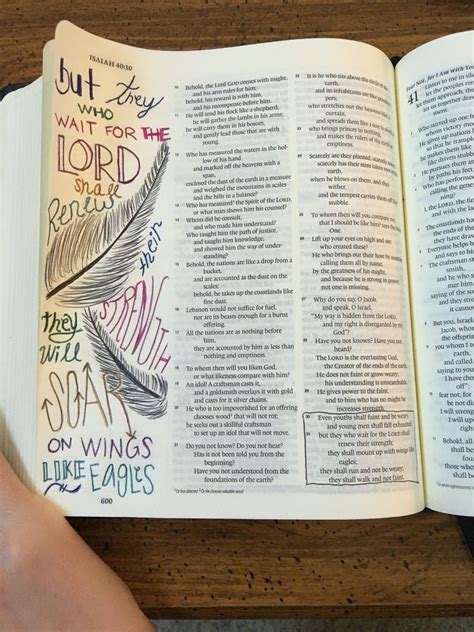 ISAIAH 40:10
but they
WHO
WAIT FOR THE
LORD
shall
Renew
their
STRENGTH
they
will
SOAR
ON WINGS
LIKE EAGLES
600
10 Behold, the Lord GOD comes with might,
and his arm rules for him;
behold, his reward is with him,
and his recompense before him.
11 He will tend his flock like a shepherd;
he will gather the lambs in his arms;
he will carry them in his bosom,
and gently lead those that are with
young.
12 Who has measured the waters in the hollow
of his hand
and marked off the heavens with a
span,
enclosed the dust of the earth in a measure
and weighed the mountains in scales
and the hills in a balance?
13 Who has measured the Spirit of the LORD,
or what man shows him his counsel?
14 Whom did he consult,
and who made him understand?
Who taught him the path of justice,
and taught him knowledge,
and showed him the way of understanding?
15 Behold, the nations are like a drop from a
bucket,
and are accounted as the dust on the
scales;
behold, he takes up the coastlands like
fine dust.
16 Lebanon would not suffice for fuel,
nor are its beasts enough for a burnt
offering.
17 All the nations are as nothing before
him,
they are accounted by him as less than
nothing and emptiness.
18 To whom then will you liken God,
or what likeness compare with him?
19 An idol! A craftsman casts it,
and a goldsmith overlays it with gold
and casts for it silver chains.
20 He who is too impoverished for an offering
chooses wood that will not rot;
he seeks out a skillful craftsman
to set up an idol that will not move.
21 Do you not know? Do you not hear?
Has it not been told you from the
beginning?
Have you not understood from the
foundations of the earth?
22 It is he who sits above the circle of the
earth,
and its inhabitants are like grasshoppers;
who stretches out the heavens like a
curtain,
and spreads them like a tent to dwell in;
23 who brings princes to nothing,
and makes the rulers of the earth as
emptiness.
24 Scarcely are they planted, scarcely sown,
scarcely has their stem taken root in the
earth,
when he blows on them, and they
wither,
and the tempest carries them off like
stubble.
25 To whom then will you compare me,
that I should be like him? says the Holy
One.
26 Lift up your eyes on high and see:
who created these?
He who brings out their host by number,
calling them all by name,
by the greatness of his might,
and because he is strong in power
not one is missing.
27 Why do you say, O Jacob,
and speak, O Israel,
"My way is hidden from the LORD,
and my right is disregarded by my
God"?
28 Have you not known? Have you not
heard?
The LORD is the everlasting God,
the Creator of the ends of the earth.
He does not faint or grow weary;
his understanding is unsearchable.
29 He gives power to the faint,
and to him who has no might he
increases strength.
30 Even youths shall faint and be weary,
and young men shall fall exhausted;
31 but they who wait for the LORD shall
renew their strength;
they shall mount up with wings like
eagles;
they shall run and not be weary;
they shall walk and not faint.
Fear Not, for I Am with You
41 Listen to me in